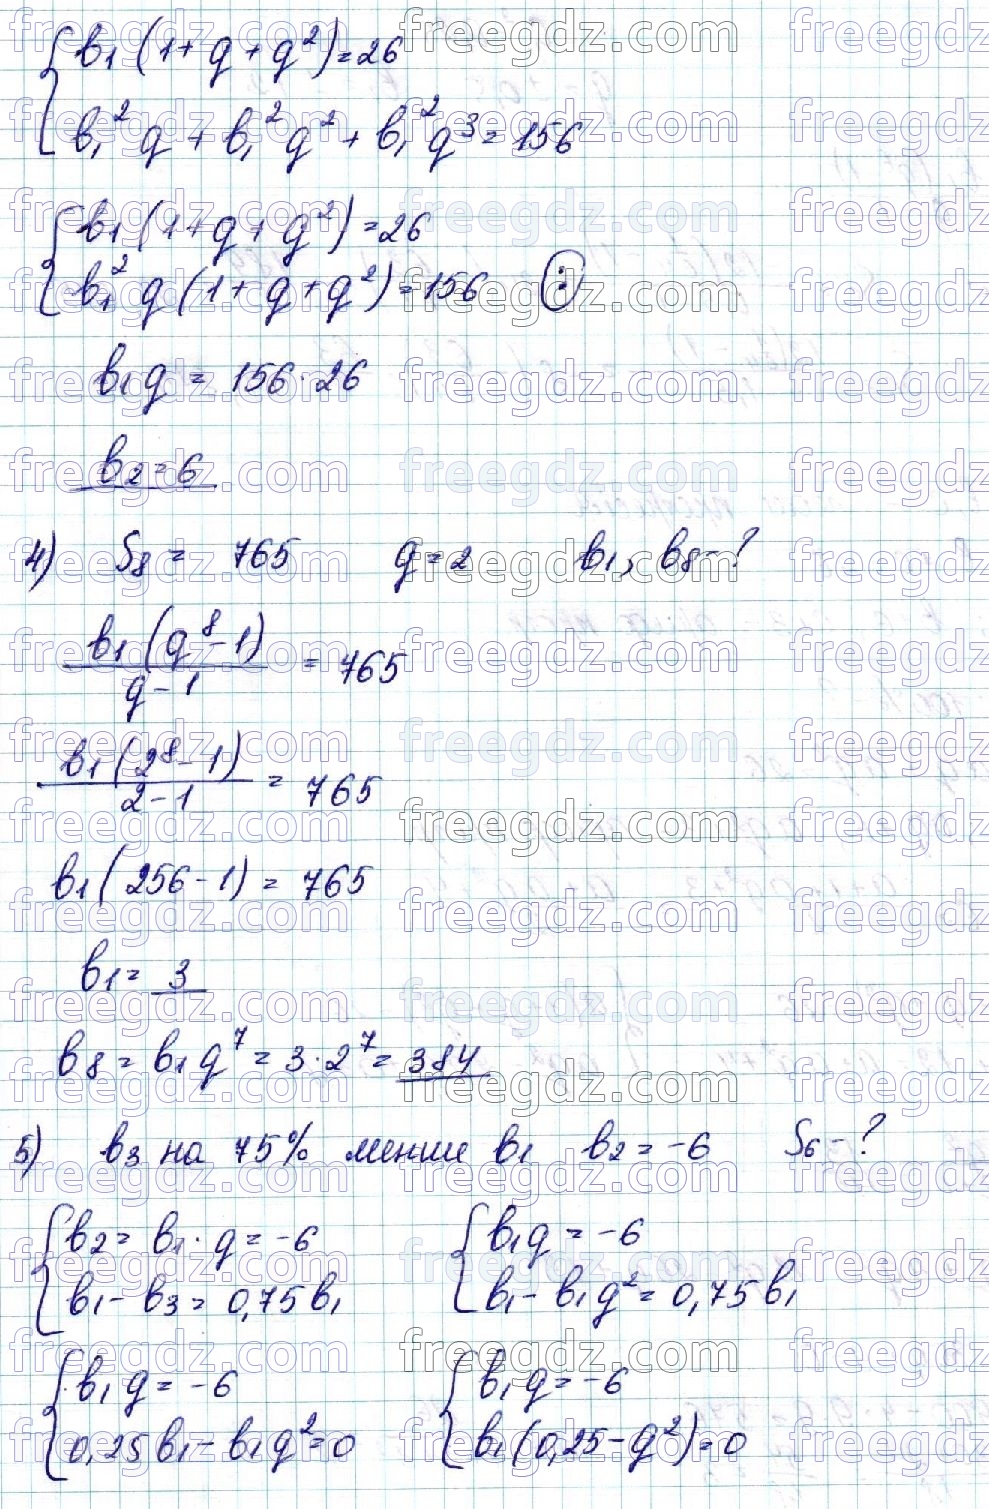 { b₁(1+q+q²)=26
b₁²q + b₁²q² + b₁²q³ = 156
{ b₁(1+q+q²)=26
b₁²q(1+q+q²)=156 (:)
b₁q = 156·26
b₂=6
4) S₈ = 765 q=2 b₁, b₈-?
b₁(q⁸-1)/q-1 = 765
b₁(2⁸-1)/2-1 = 765
b₁(256-1) = 765
b₁ = 3
b₈ = b₁q⁷ = 3·2⁷ = 384
5) b₃ на 75% менше b₁ b₂ = -6 S₆-?
{ b₂ = b₁·q = -6 { b₁q = -6
b₁-b₃ = 0,75b₁ b₁-b₁q² = 0,75b₁
{ b₁q = -6 { b₁q = -6
0,25b₁-b₁q²=0 b₁(0,25-q²)=0
freegdz.com